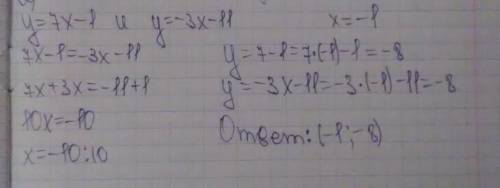 y=7x-1 и y=-3x-11
7x-1=-3x-11
7x+3x=-11+1
10x=-10
x=-10:10
x=-1
y=7-1=7·(-1)-1=-8
y=-3x-11=-3·(-1)-11=-8
Ответ: (-1;-8)